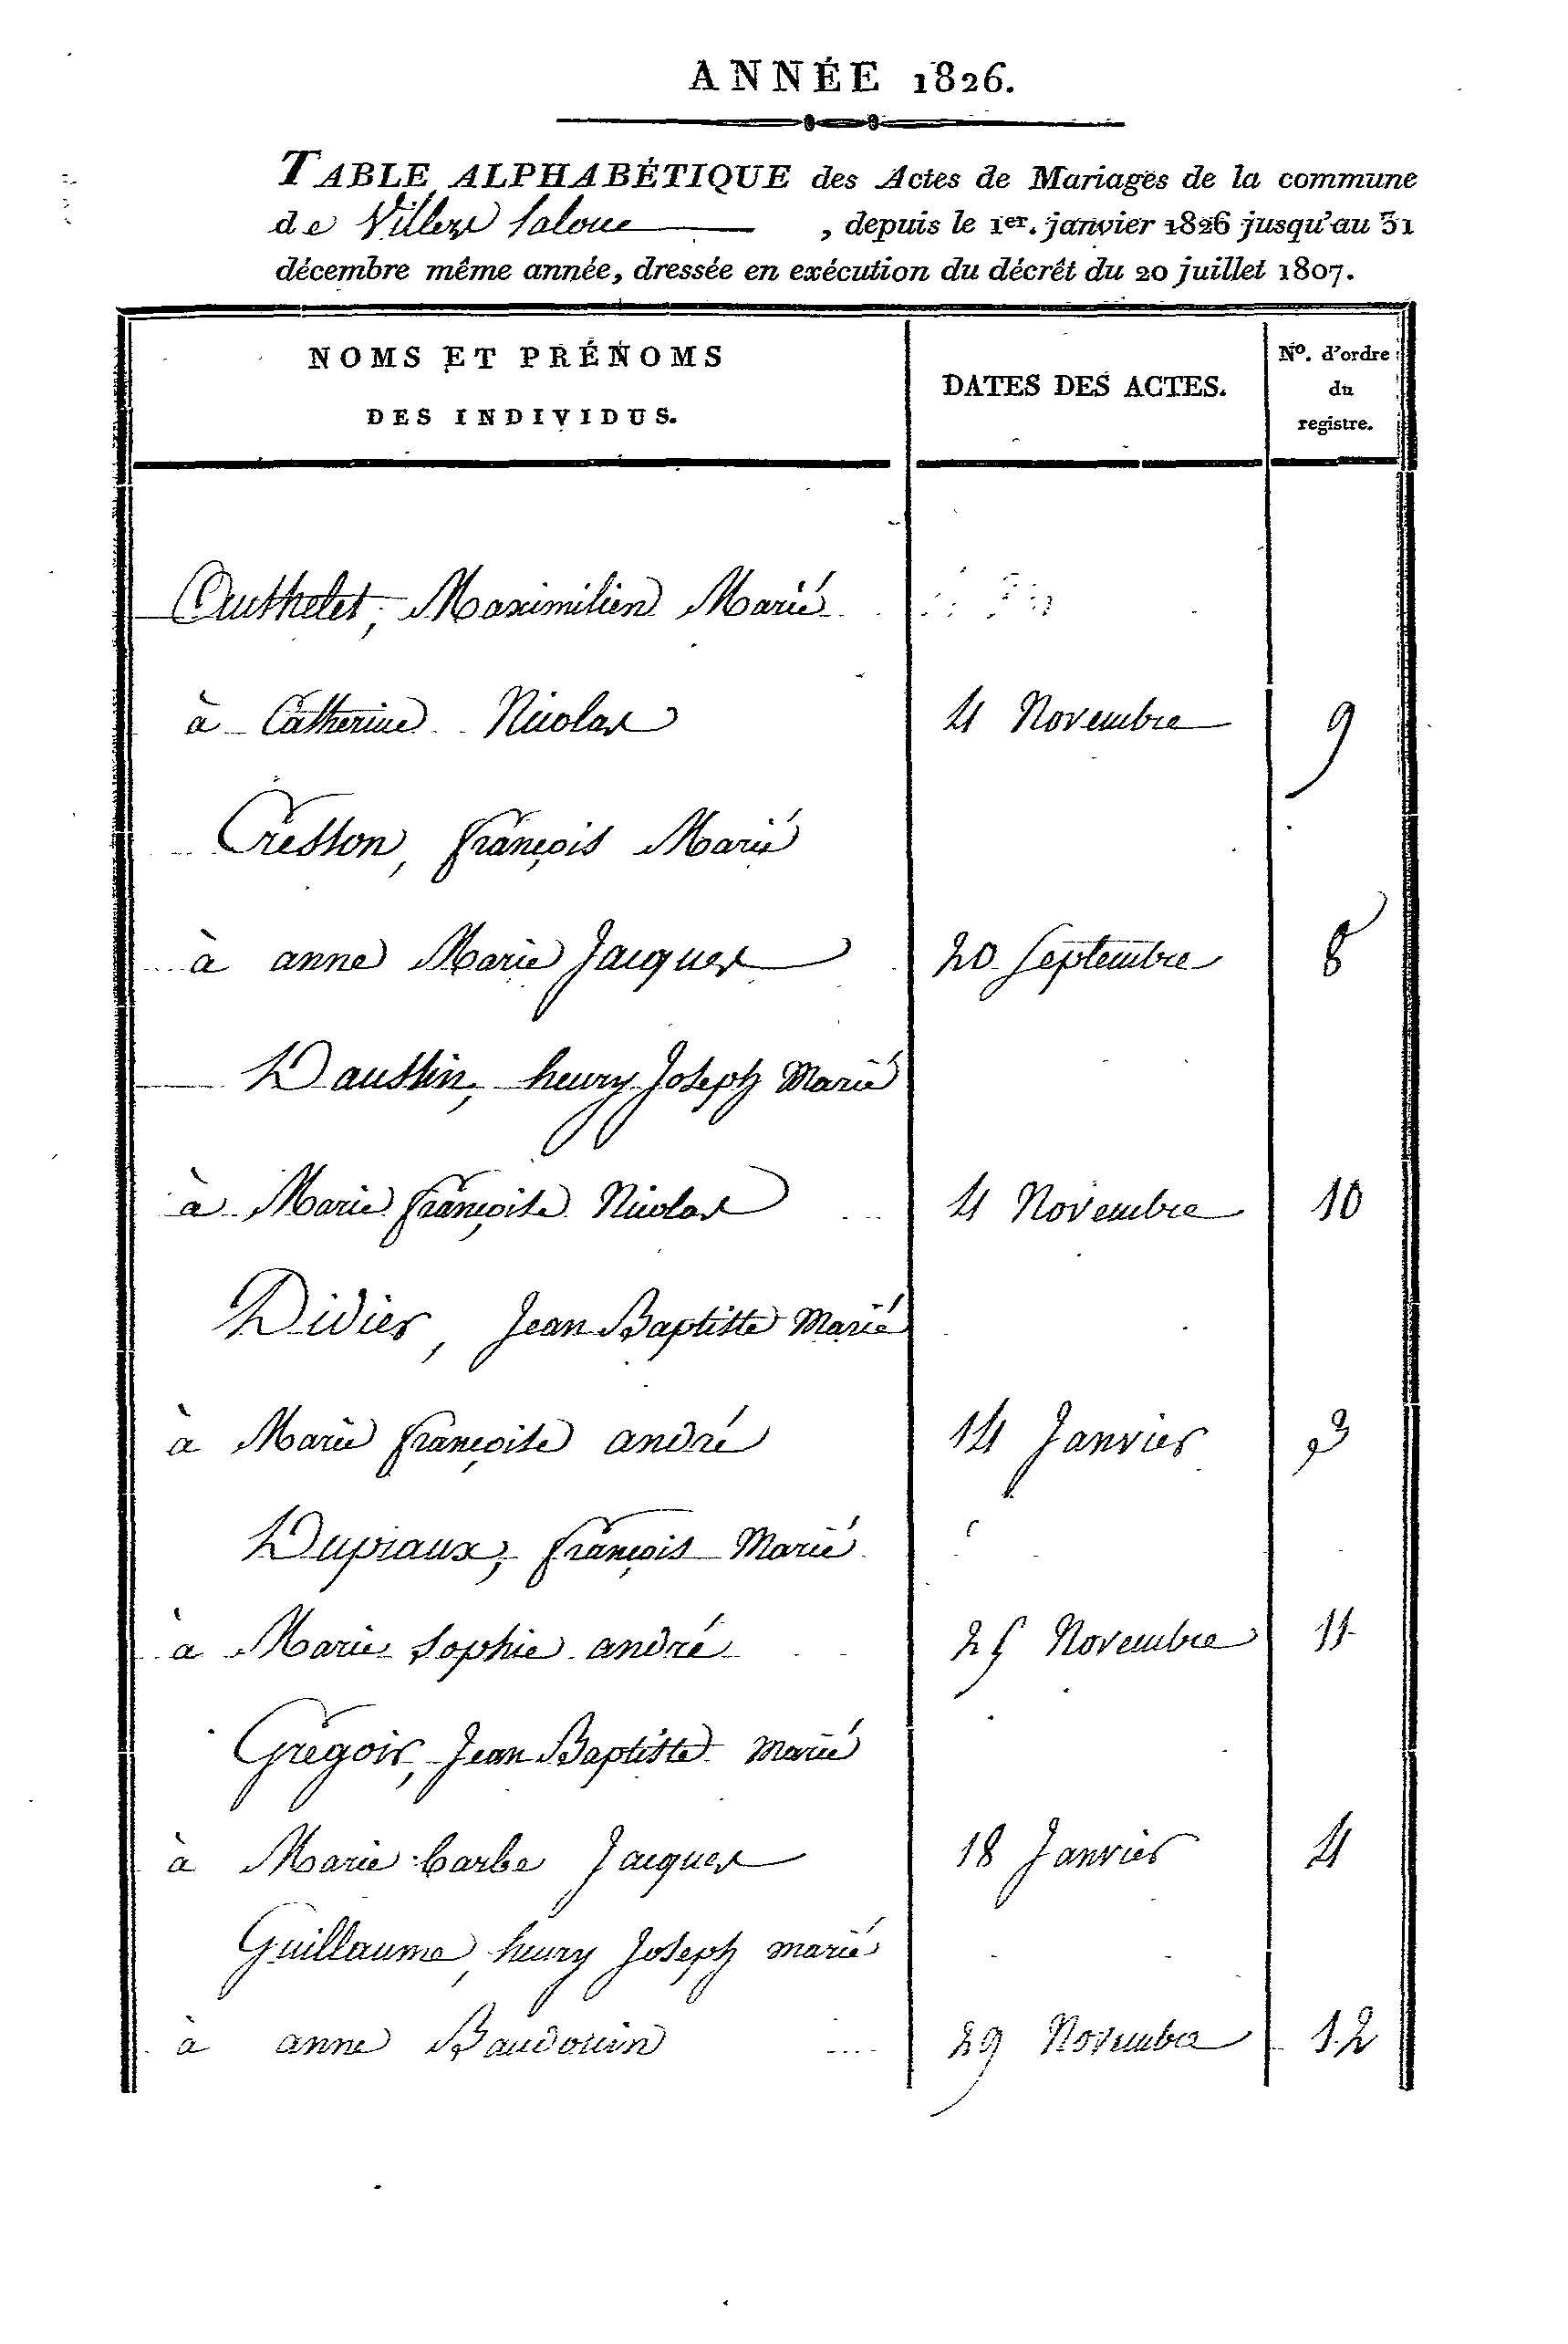 ANNÉE 1826.
TABLE ALPHABÉTIQUE des Actes de Mariages de la commune
de Villers laloue, depuis le 1er. janvier 1826 jusqu'au 31
décembre même année, dressée en exécution du décrêt du 20 juillet 1807.
NOMS ET PRÉNOMS
DES INDIVIDUS.
DATES DES ACTES.
No. d'ordre
du
registre.
Maximilien Marié
à Catherine Nicolas 4 Novembre 9
Cresson, françois Marié
à anne Marie Jacques 20 Septembre 8
Daussin, henry Joseph Marié
à Marie françoise Nicolas 4 Novembre 10
Didier, Jean Baptiste Marié
à Marie françoise andré 14 Janvier 3
Dupiaux, françois Marié
à Marie Sophie andré 25 Novembre 11
Grégoir, Jean Baptiste marié
à Marie barbe Jacques 18 Janvier 4
Guillaume, henry Joseph marié
à anne Baudouin 29 Novembre 12